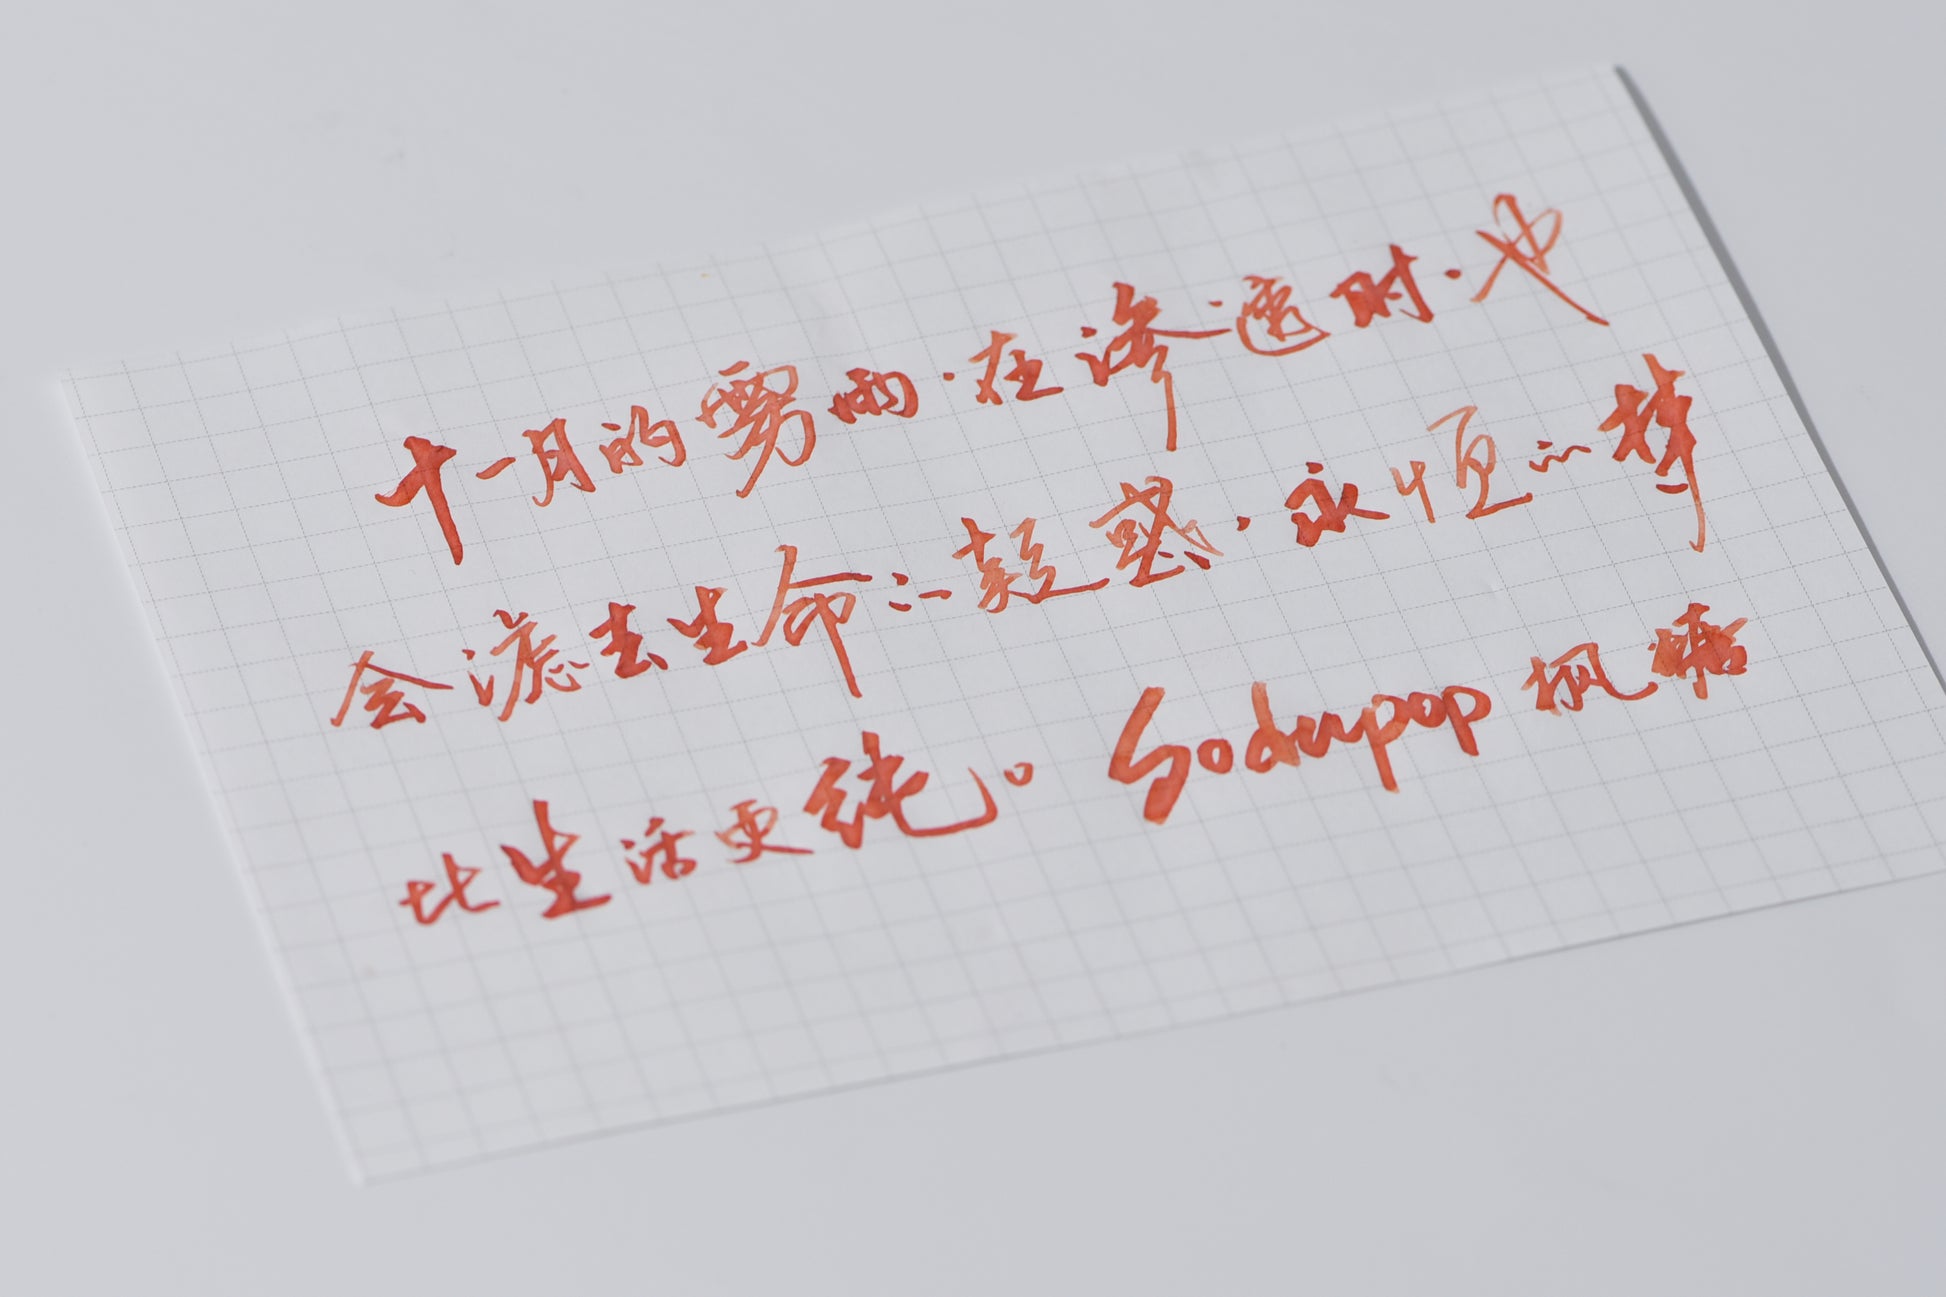 十一月的雾雨·在渗透时·也
会滤去生命的疑惑·永恒的梦
比生活更纯。 Sodapop 枫糖